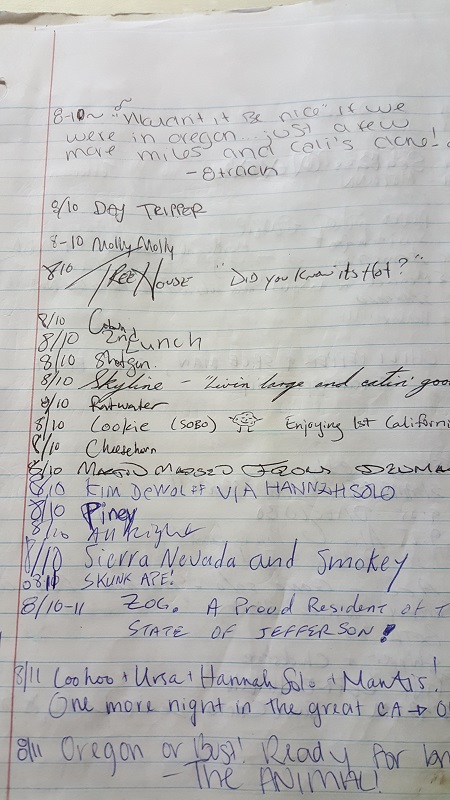 8-10~ "Wouldn't it Be nice" if we
were in oregon... just a few
more miles and Cali's done!
8/10 DAY TRIPPER
8-10 Molly Molly
8/10 TREEHOUSE "Did you know its Hot?"
8/10
8/10 2nd Lunch
8/10 Shotgun.
8/10 Skyline - "livin large and eatin' goo
8/10 Rainwater
8/10 Cookie (SOBO) Enjoying 1st Californi
8/10 Cheesehorn
8/10
8/10 KIM DEWOLFF VIA HANNAH SOLO
8/10 Piney
8/10 All Right
8/10 Sierra Nevada and Smokey
0810 SKUNK APE!
8/10-11 ZOG. A Proud Resident of T
STATE OF JEFFERSON!
8/11 Coohoo + Ursa + Hannah Solo + Mantis!
One more night in the great CA → O
8/11 Oregon or Bust! Ready for
- The ANIMAL!